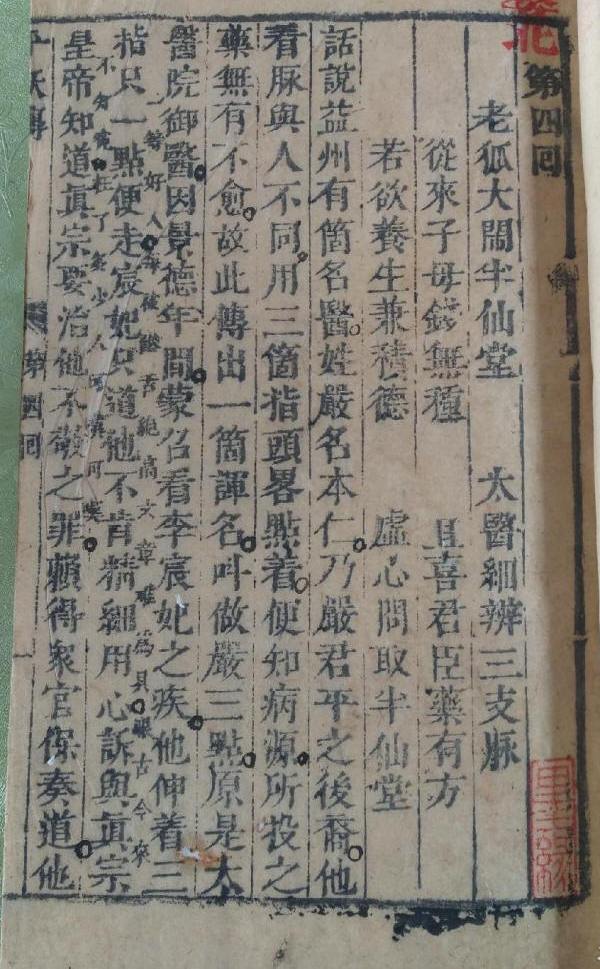 第四回
老狐大鬧半仙堂　太醫細辨三支脉
從來子母錢無種　且喜君臣藥有方
若欲養生兼積德　虛心問取半仙堂
話說益州有箇名醫。姓嚴名本仁。乃嚴君平之後裔。他
看脉與人不同。用三箇指頭畧點着。便知病源。所投之
藥無有不愈。故此傳出一箇諢名。叫做嚴三點。原是太
醫院御醫。因景德年間。蒙召看李宸妃之疾。他伸着三
一等好人每被謗言絶高文章難爲具眼古今來
指只一點便走宸妃只道他不肯精細用心訴與眞宗
不知寃枉了多少人可憐可嘆
皇帝知道眞宗要治他不敬之罪。賴得衆官保奏道。他
平妖傳　第四回